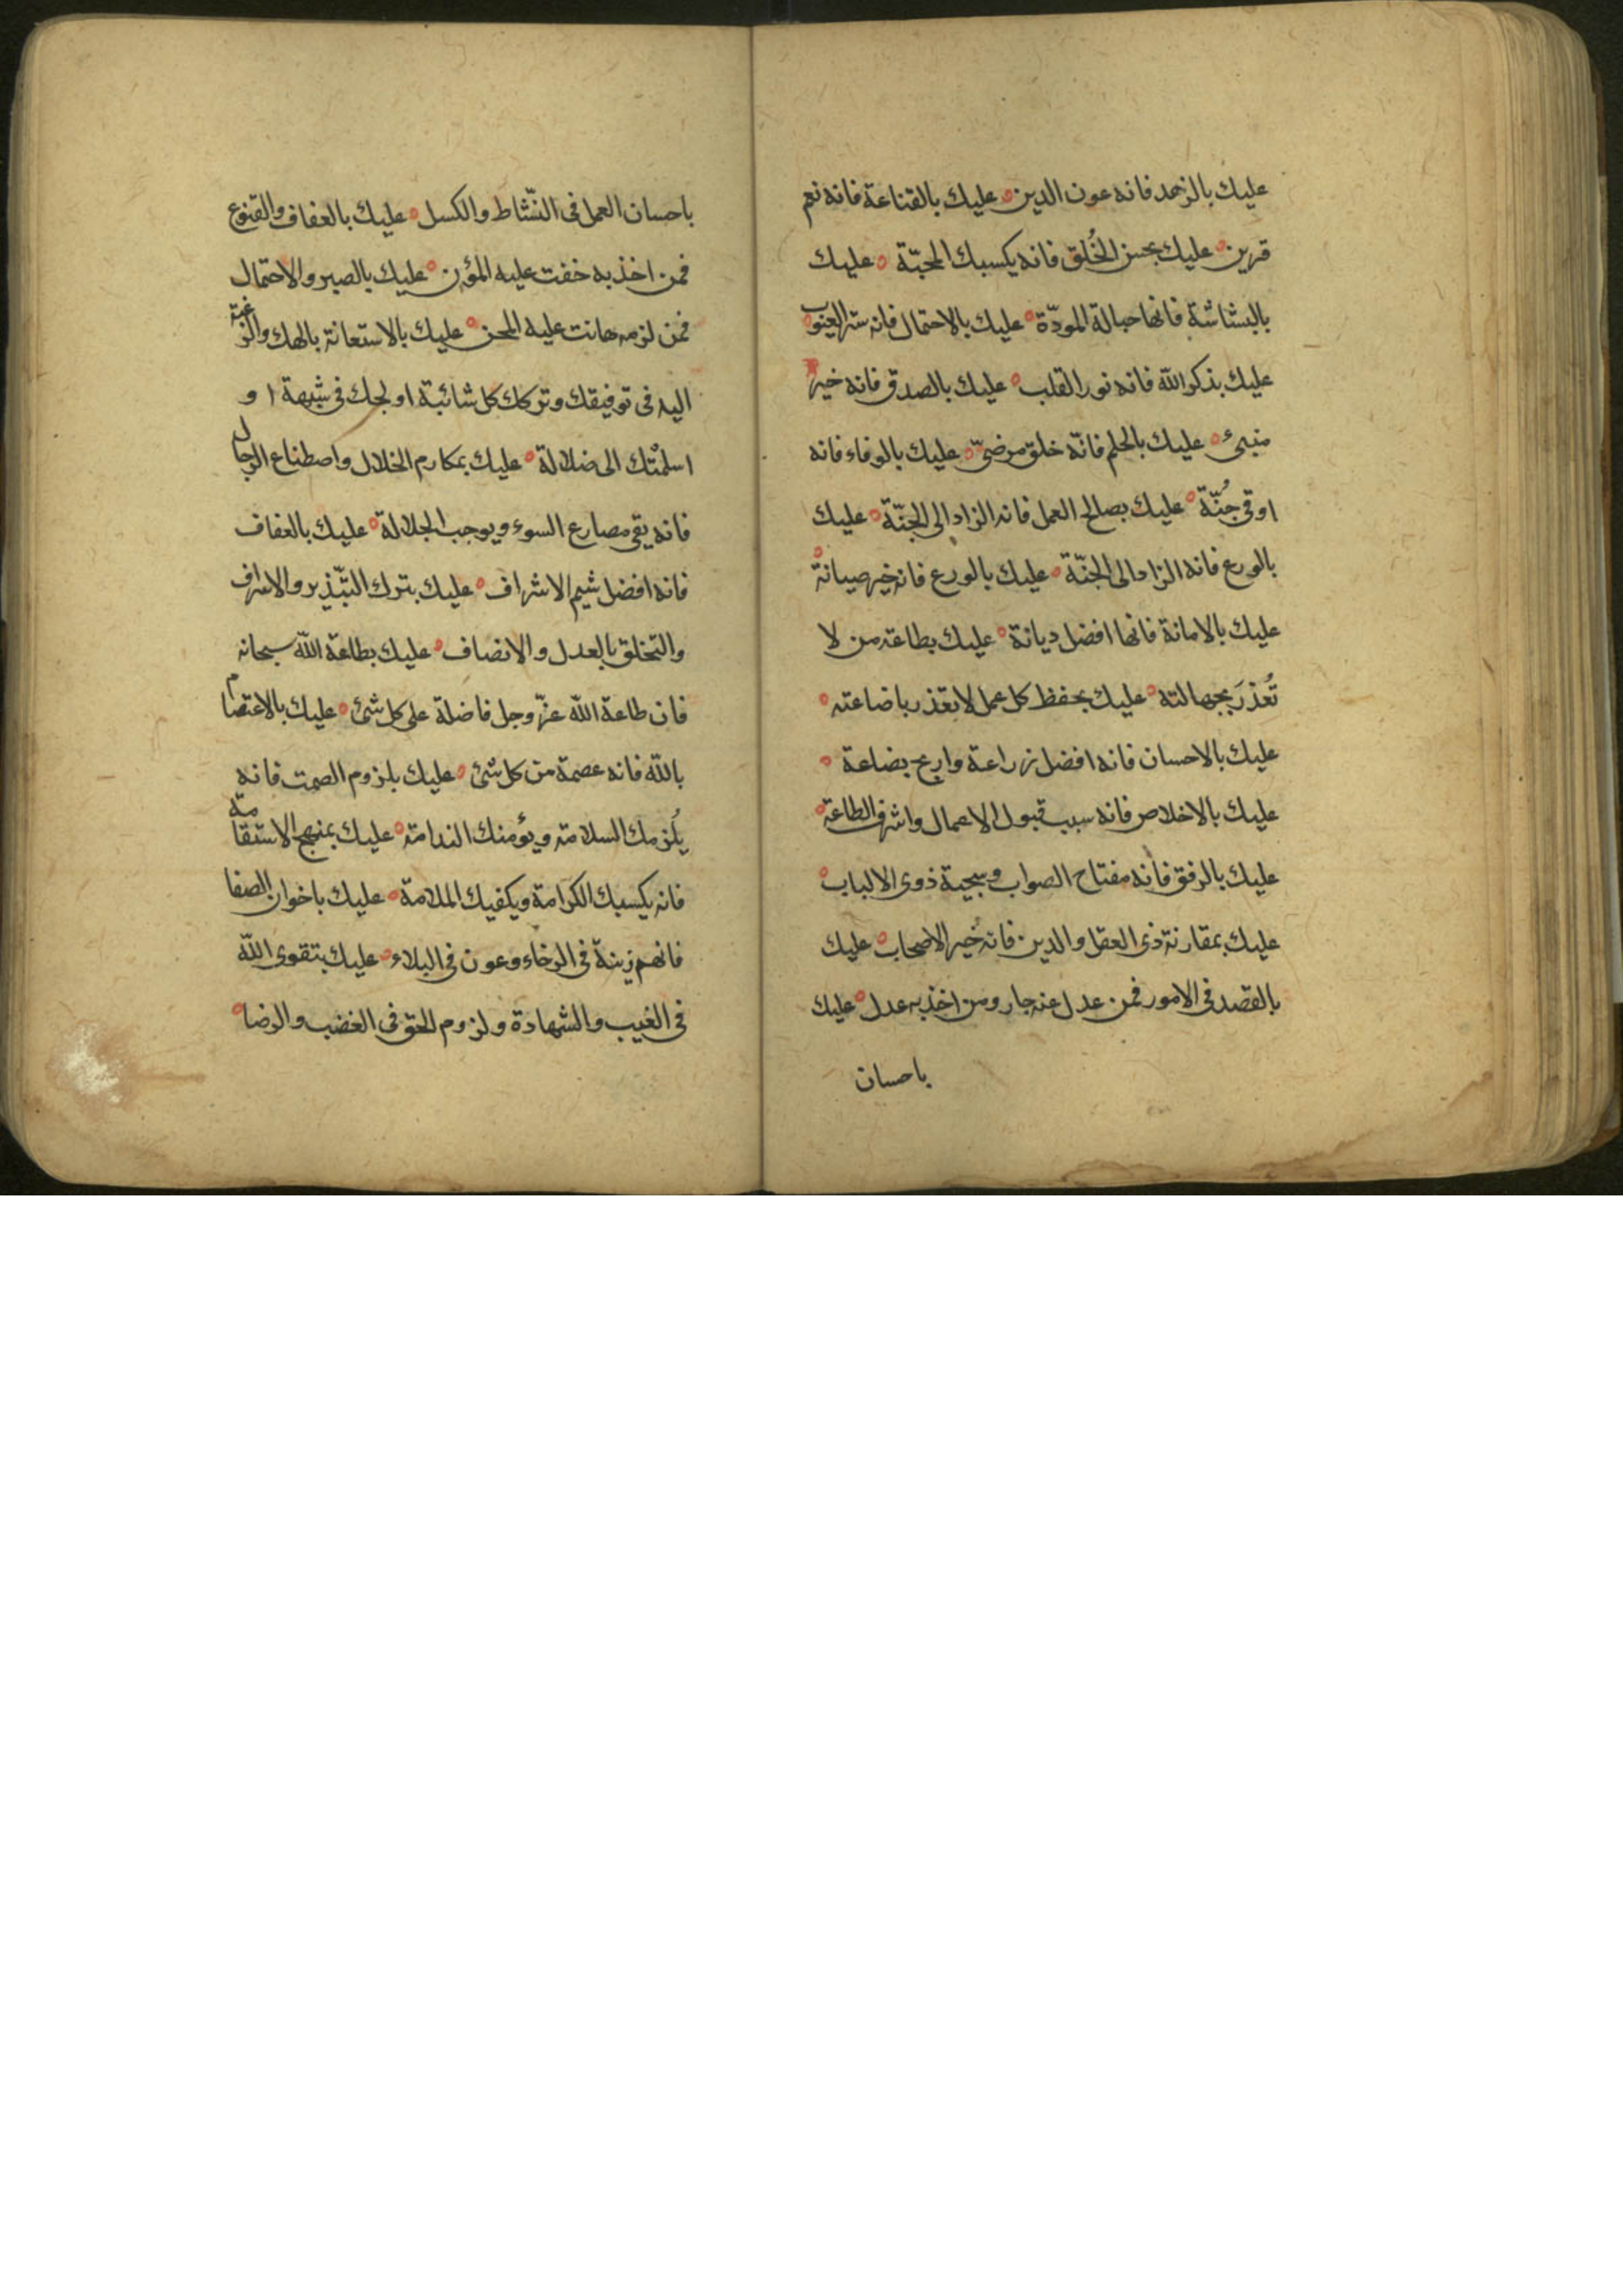 عليك بالزهد فانه عون الدين ه عليك بالقناعة فانه نعم
قرين ه عليك بحسن الخُلق فانه يكسبك المحبّة ه عليك
بالبشاشة فانها حبالة المودّة ه عليك بالاحتمال فانه ستر العيوب ه
عليك بذكر الله فانه نور القلب ه عليك بالصدق فانه خير
منبئ ه عليك بالحلم فانّه خلق مرضىّ ه عليك بالوفاء فانه
اوقى جُنّة ه عليك بصالح العمل فانه الزاد الى الجنّة ه عليك
بالورع فانه الزاد الى الجنّة ه عليك بالورع فانه خير صيانة ه
عليك بالامانة فانها افضل ديانة ه عليك بطاعة من لا
تُعذرَ بجهالته ه عليك بحفظ كل عمل لا تعذر باضاعته ه
عليك بالاحسان فانه افضل زراعة واربح بضاعة ه
عليك بالاخلاص فانه سبب قبول الاعمال واشرف الطاعة ه
عليك بالرفق فانه مفتاح الصواب وسجية ذوى الالباب ه
عليك بمقارنة ذى العقل والدين فانه خير الاصحاب ه عليك
بالقصد فى الامور فمن عدل عنه جار ومن اخذ به عدل ه عليك
باحسان
باحسان العمل فى النّشاط والكسل ه عليك بالعفاف والقنوع
فمن اخذ به خفت عليه المؤن ه عليك بالصبر والاحتمال
فمن لزمه هانت عليه المحن ه عليك بالاستعانة بالهك والرغبة
اليه فى توفيقك وتركك كل شائبة اولجك فى شبهة او
اسلمْتك الى ضلالة ه عليك بمكارم الخلال واصطناع الرجال
فانه يقى مصارع السوء ويوجب الجلالة ه عليك بالعفاف
فانه افضل شيم الاشراف ه عليك بترك التبّذير والاسراف
والتخلق بالعدل والانصاف ه عليك بطاعة الله سبحانه
فان طاعة الله عزّ وجل فاضلة على كل شئ ه عليك بالاعتصام
بالله فانه عصمة من كل شئ ه عليك بلزوم الصمت فانه
يُلزمك السلامة ويؤمنك الندامة ه عليك بمنهج الاستقامة
فانه يكسبك الكرامة ويكفيك الملامة ه عليك باخوان الصفا
فانهم زينة فى الرخاء وعون فى البلاء ه عليك بتقوى الله
فى الغيب والشهادة ولزوم الحق فى الغضب والرضا ه